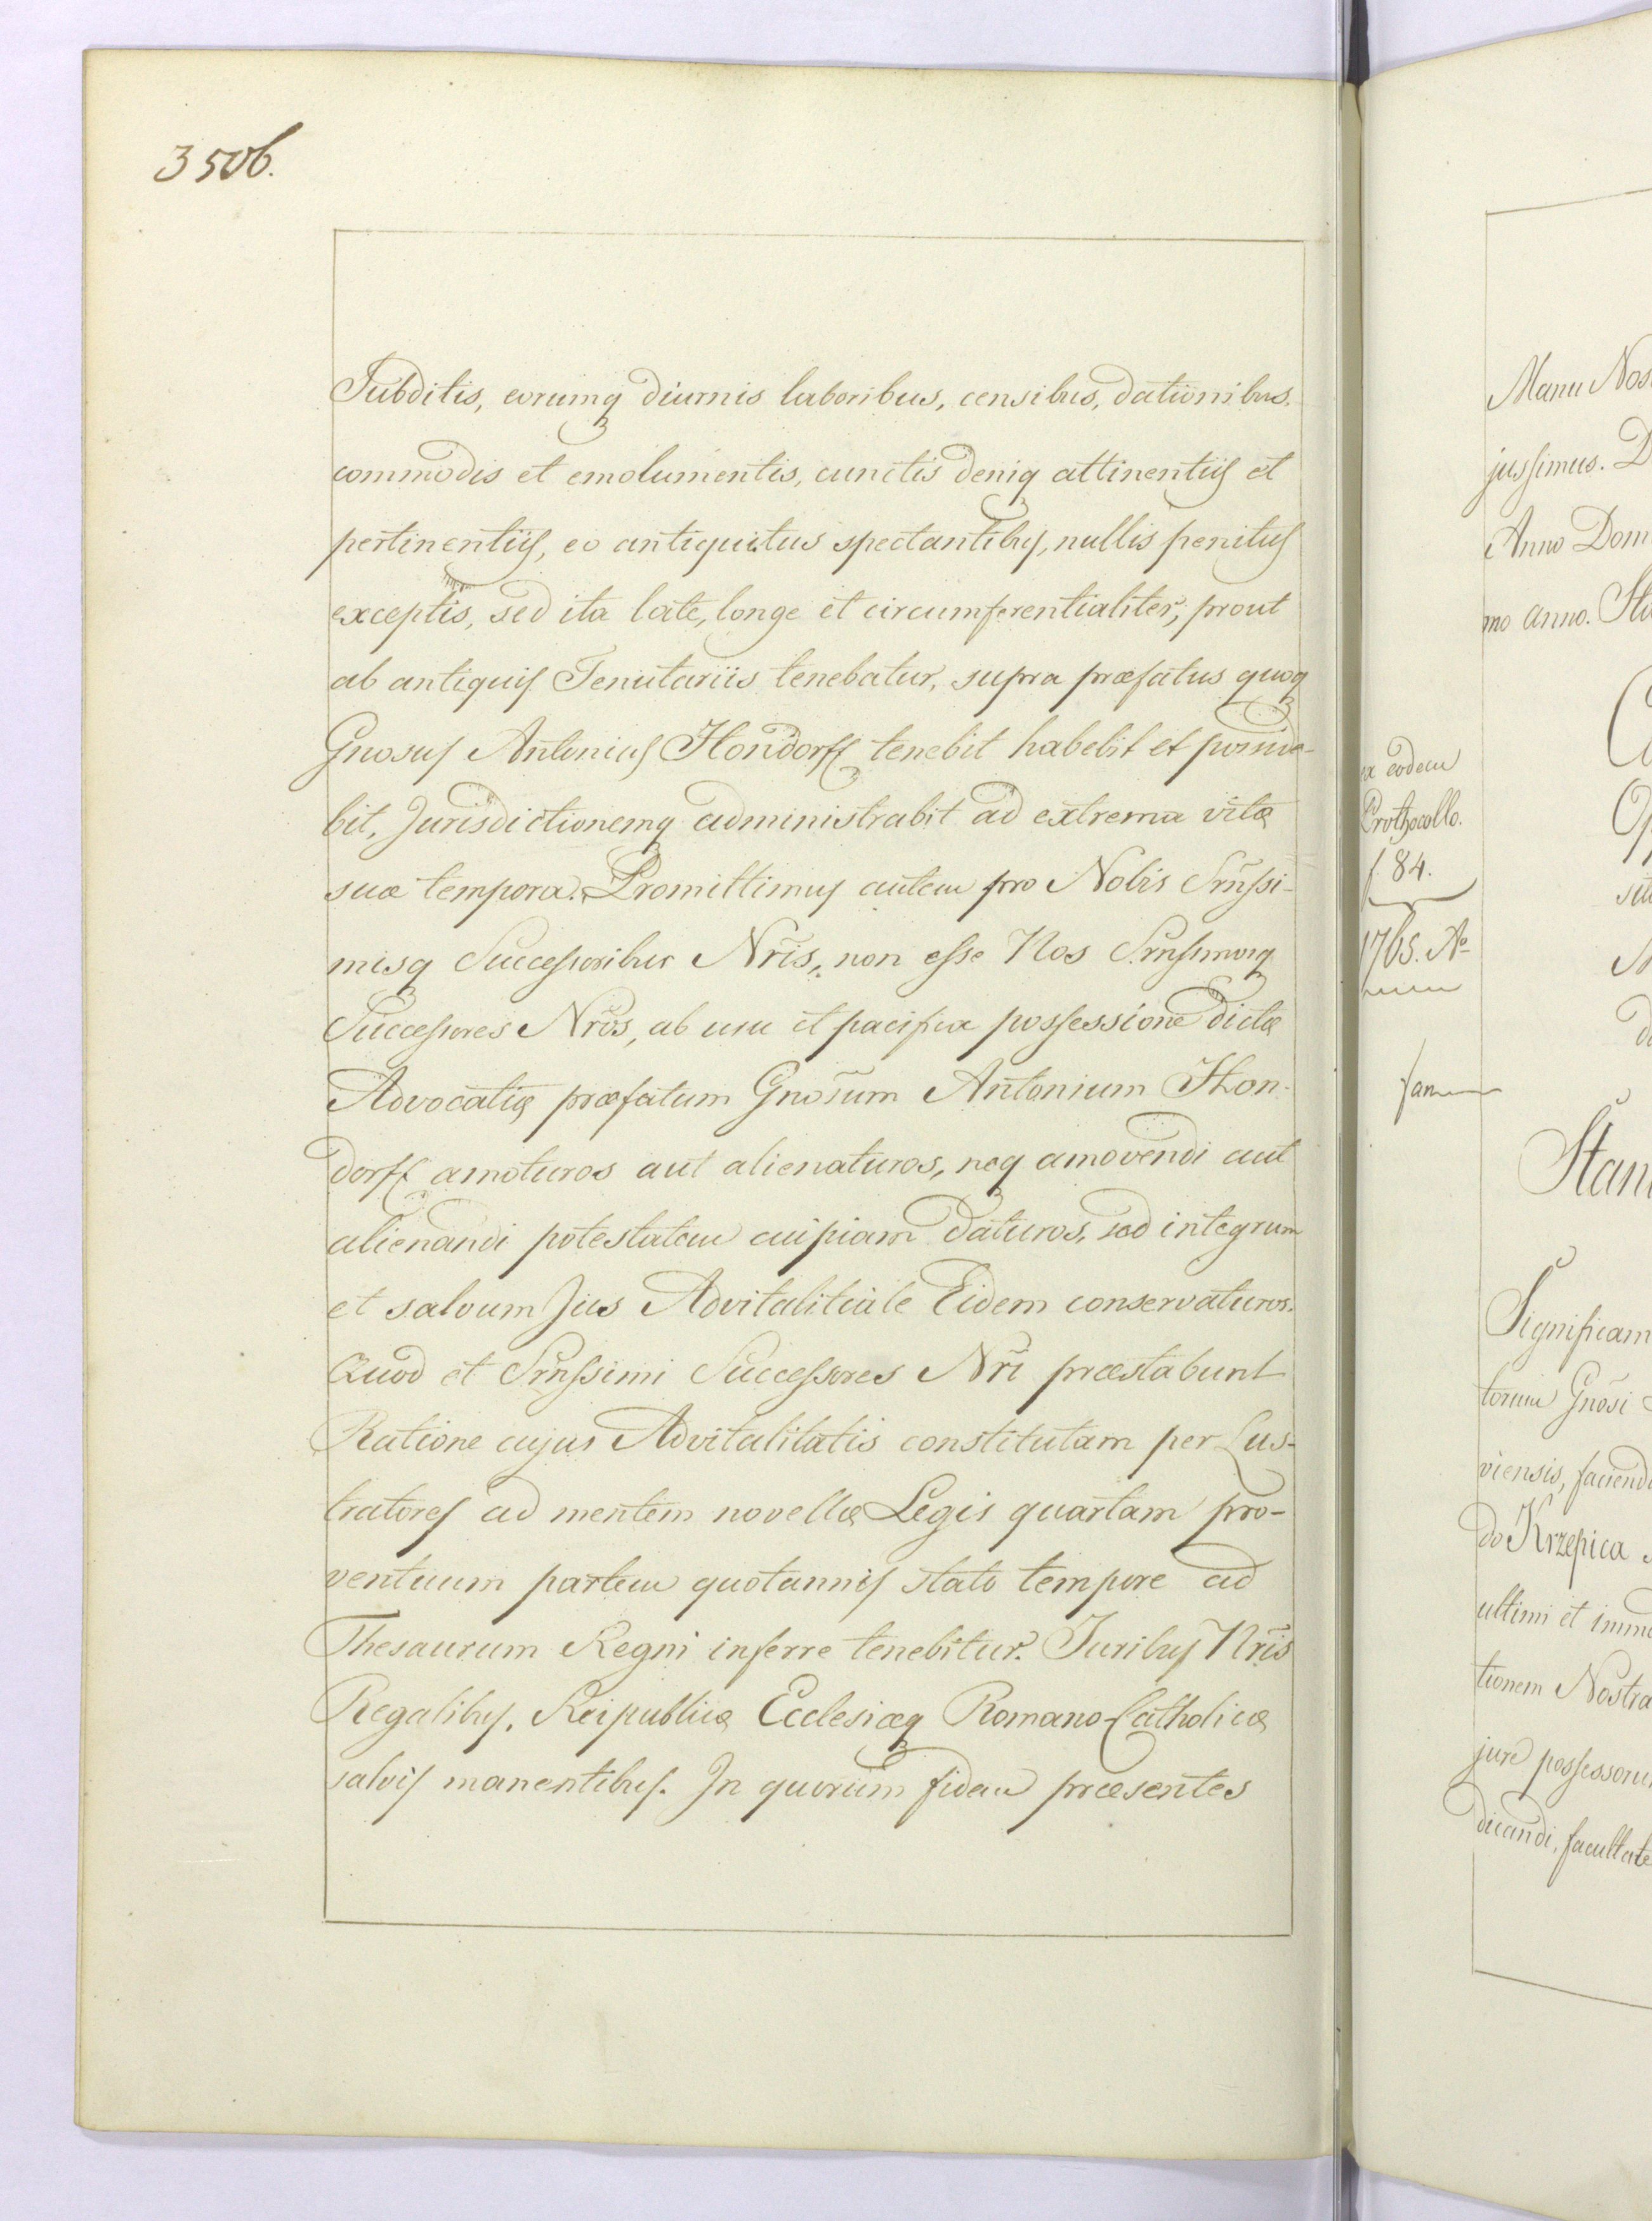 3506.
Subditis, eorumq diurnis laboribus, censibus, dationibus.
commodis et emolumentis, cunctis deniq attinentiis et
pertinentiis, eo antiquitus spectantibus, nullis penitus
exceptis, sed ita late, longe et circumferentialiter, prout
ab antiquis Tenutariis tenebatur, supra præfatus quoq
Gnosus Antonius Hondorff tenebit habebit et posside-
bit, Jurisdictionemq administrabit ad extrema vitæ
suæ tempora. Promittimus autem pro Nobis Srnssi-
misq Successoribus Nris, non esse Nos Srnssimosq
Successores Nros, ab usu et pacifica possessione dictæ
Advocatiæ præfatum Gnosum Antonium Hon-
dorff amoturos aut alienaturos, neq amovendi aut
alienandi potestatem cuipiam daturos, sed integrum
et salvum Jus Advitalitiale Eidem conservaturos.
Quod et Srnssimi Successores Nri præstabunt
Ratione cujus Advitalitatis constitutam per Lus-
tratores ad mentem novellæ Legis quartam pro-
ventuum partem quotannis stato tempore ad
Thesaurum Regni inferre tenebitur. Juribus Nris
Regalibus, Reipublicæ Ecclesiæq Romano-Catholicæ
salvis manentibus. In quorum fidem præsentes
Manu Nos
jussimus. D
Anno Dom
mo anno. Sta
eodem
Prothocollo.
f. 84.
1765. Ao
Stan
Significam
torum Gnosi
viensis, faciend
do Krzepica
ultimi et imme
tionem Nostra
jure possessoru
dicandi, facultate